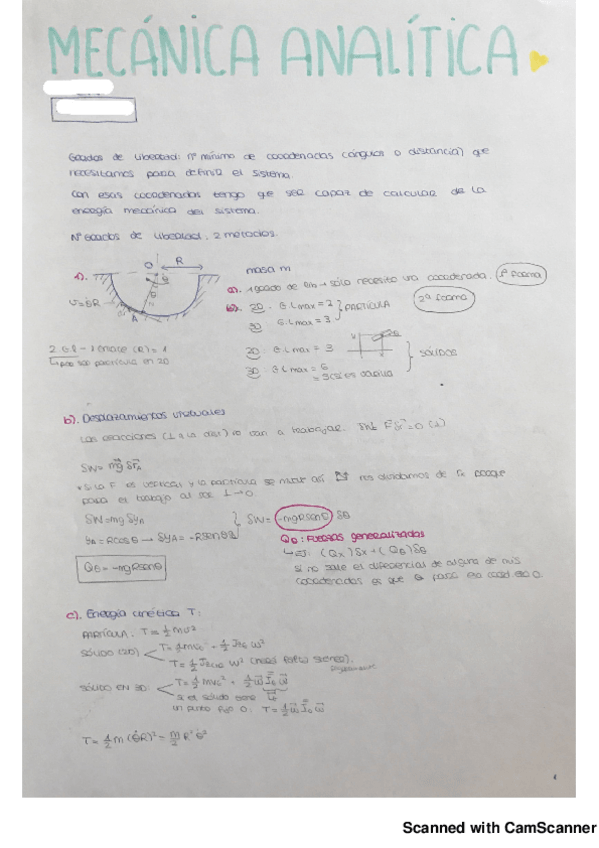 MECÁNICA ANALÍTICA
Grados de libertad: nº mínimo de coordenadas (ángulos o distancia) que
necesitamos para definir el sistema.
Con esas coordenadas tengo que ser capaz de calcular de la
energía mecánica del sistema.
Nº Grados de libertad, 2 métodos.
1).
O
R
θ
A
v=θ̇R
masa m
a). 1 grado de lib → sólo necesito una coordenada. 1ª forma
b). 2D: G.Lmax = 2 } PARTÍCULA 2ª forma
3D G.Lmax = 3
2D: G.Lmax = 3
3D: G.Lmax = 6 } SÓLIDOS
2 G.L - 1 enlace (R) = 1
por ser partícula en 2D
b). Desplazamientos virtuales
Las reacciones (⊥ a la dist) no van a trabajar.
δW = m\vec{g} δ\vec{r}_A
* Si la F es vertical y la partícula se mueve así nos olvidamos de porque
para el trabajo al ser ⊥→0
δW = mg δy_A } δW = -mgRsenθ δθ
y_A = Rcosθ → δy_A = -Rsenθ δθ
Qθ: Fuerzas generalizadas
Qθ = -mgRsenθ
↪ EJ: (Qx)δx + (Qθ)δθ
si no sale el diferencial de alguna de mis
coordenadas es que la fuerza esa coord es 0.
c). Energía cinética T:
PARTÍCULA: T = ½ mv²
SÓLIDO (2D) T = ½ mv_G² + ½ I_G ω²
T = ½ ω²
SÓLIDO EN 3D: T = ½ mv_G² + ½ ω I_G ω
si el sólido tiene
un punto fijo O: T = ½ ω I_O ω
T = ½ m (θ̇R)² = m/2 R² θ̇²
Scanned with CamScanner